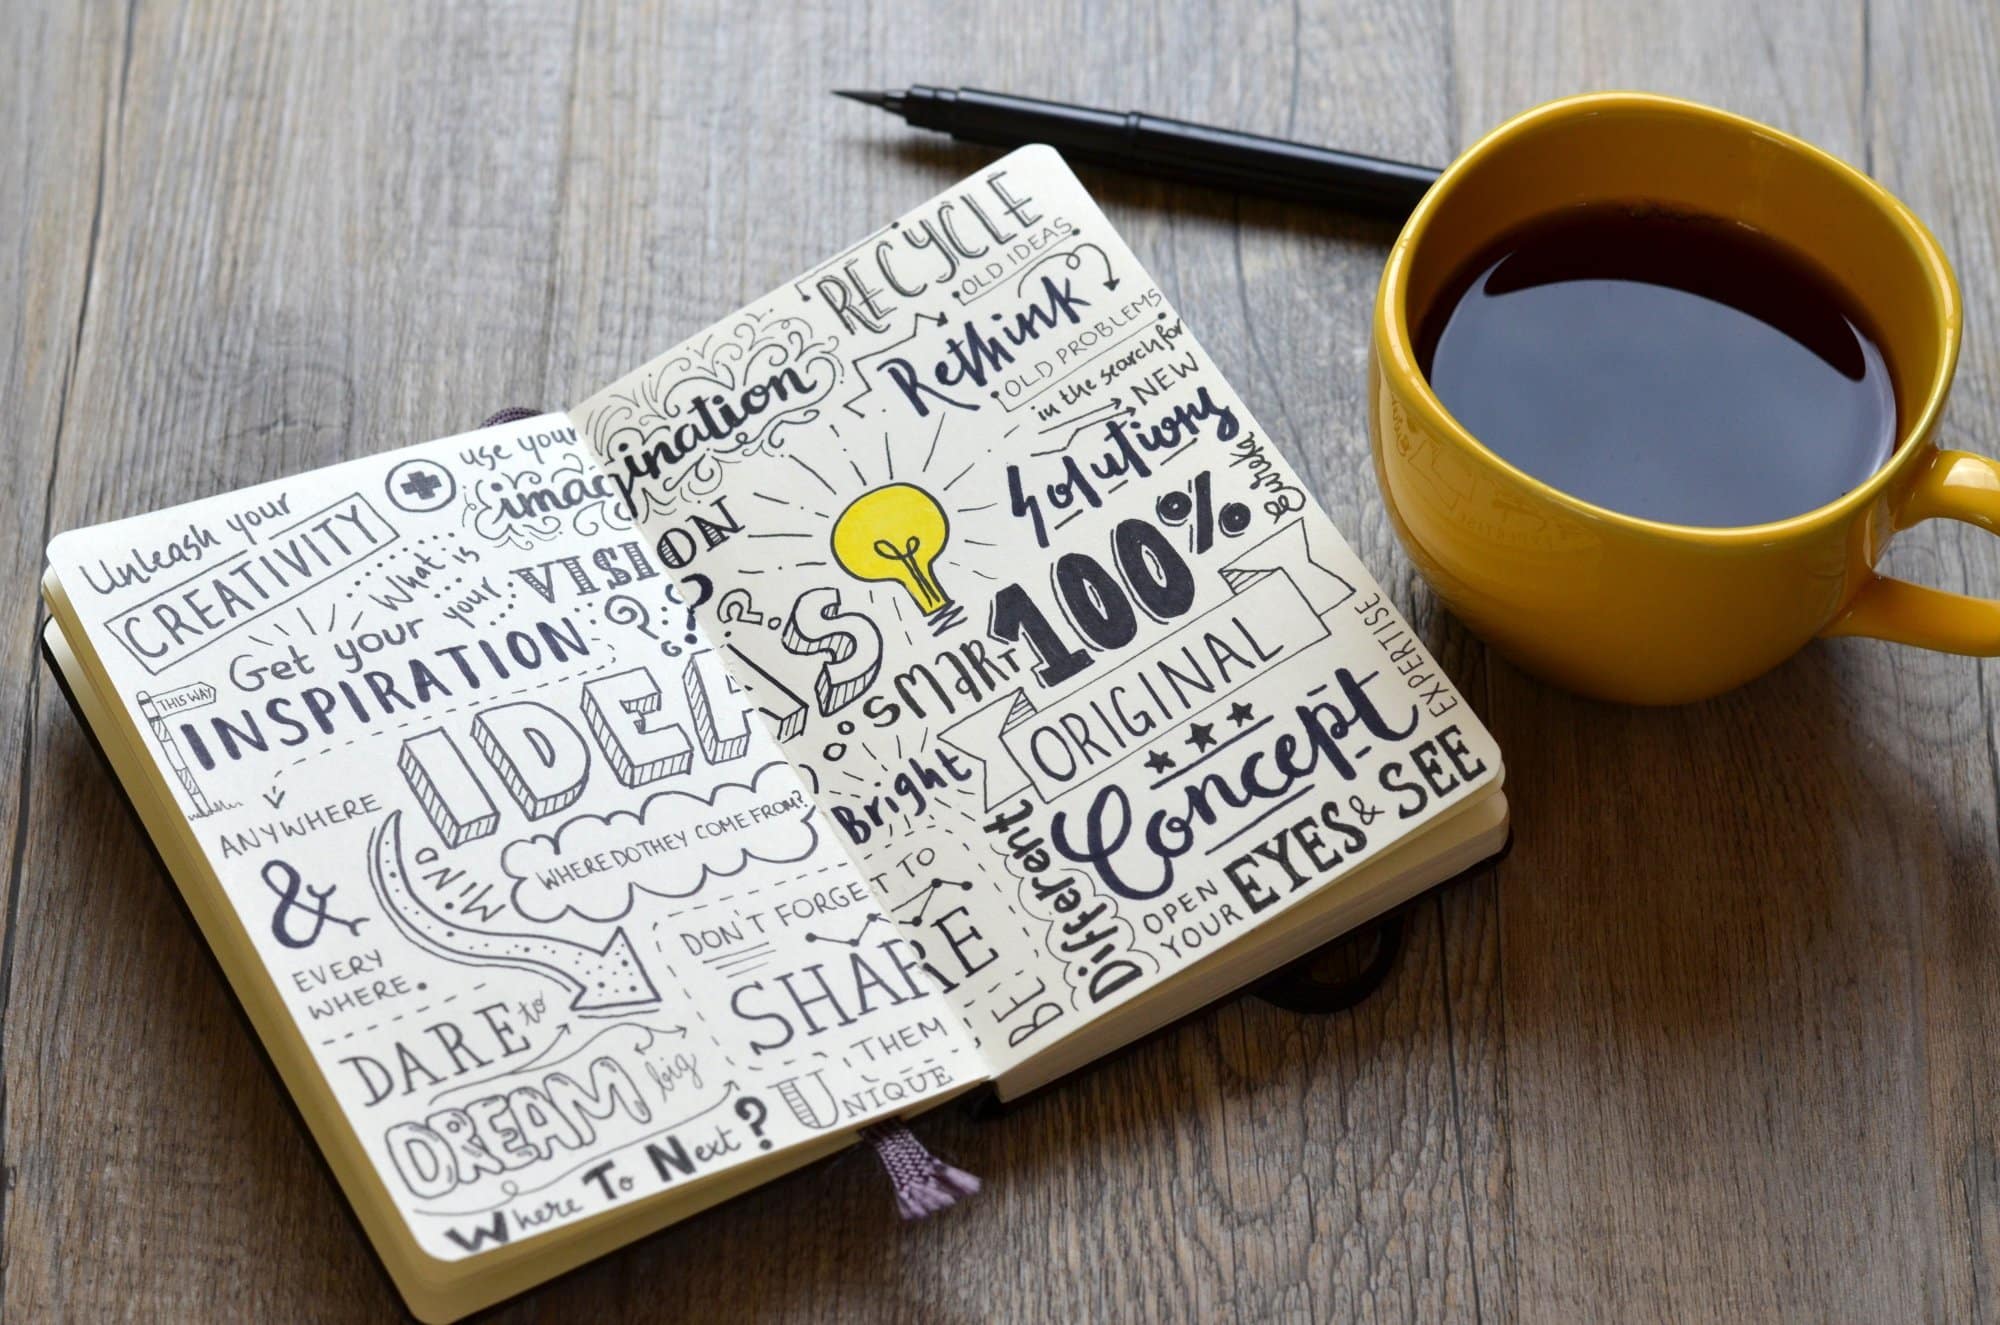 Unleash your
CREATIVITY
use your
imagination
What is
your VISION
??
Get your
INSPIRATION
THIS WAY
ANYWHERE
&
EVERY
WHERE.
IDEAS
MIND
WHERE DO THEY COME FROM?
DON'T FORGET TO
SHARE
THEM
DARE to
DREAM big
UNIQUE
Where To Next?
RECYCLE
OLD IDEAS
Rethink
OLD PROBLEMS
in the search for
NEW
Solutions
Eureka
100%
ORIGINAL
Concept
EXPERTISE
SMART
Bright
BE
Different
OPEN
YOUR EYES & SEE